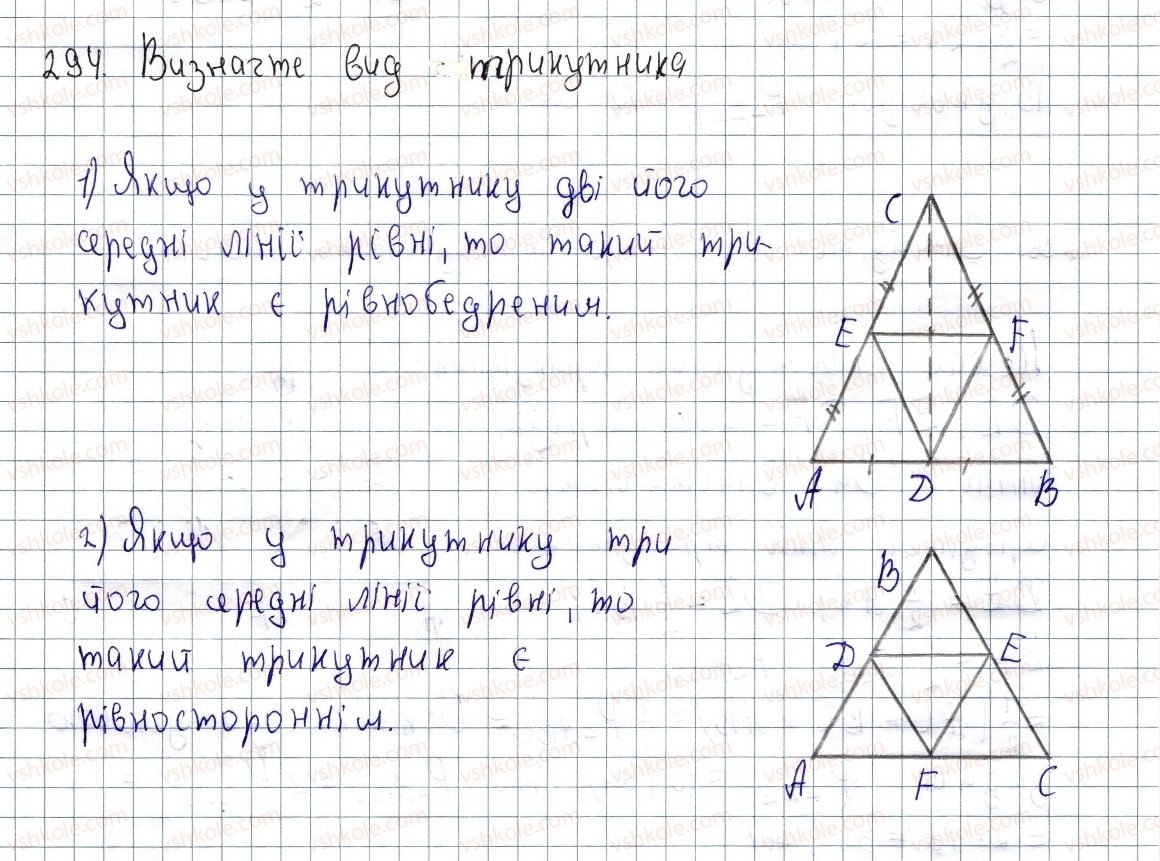 294. Визначте вид трикутника
1) Якщо у трикутнику дві його
середні лінії рівні, то такий три-
кутник є рівнобедреним.
C
E F
A D B
2) Якщо у трикутнику три
його середні лінії рівні, то
такий трикутник є
рівностороннім.
B
D E
A F C
vshkole.com